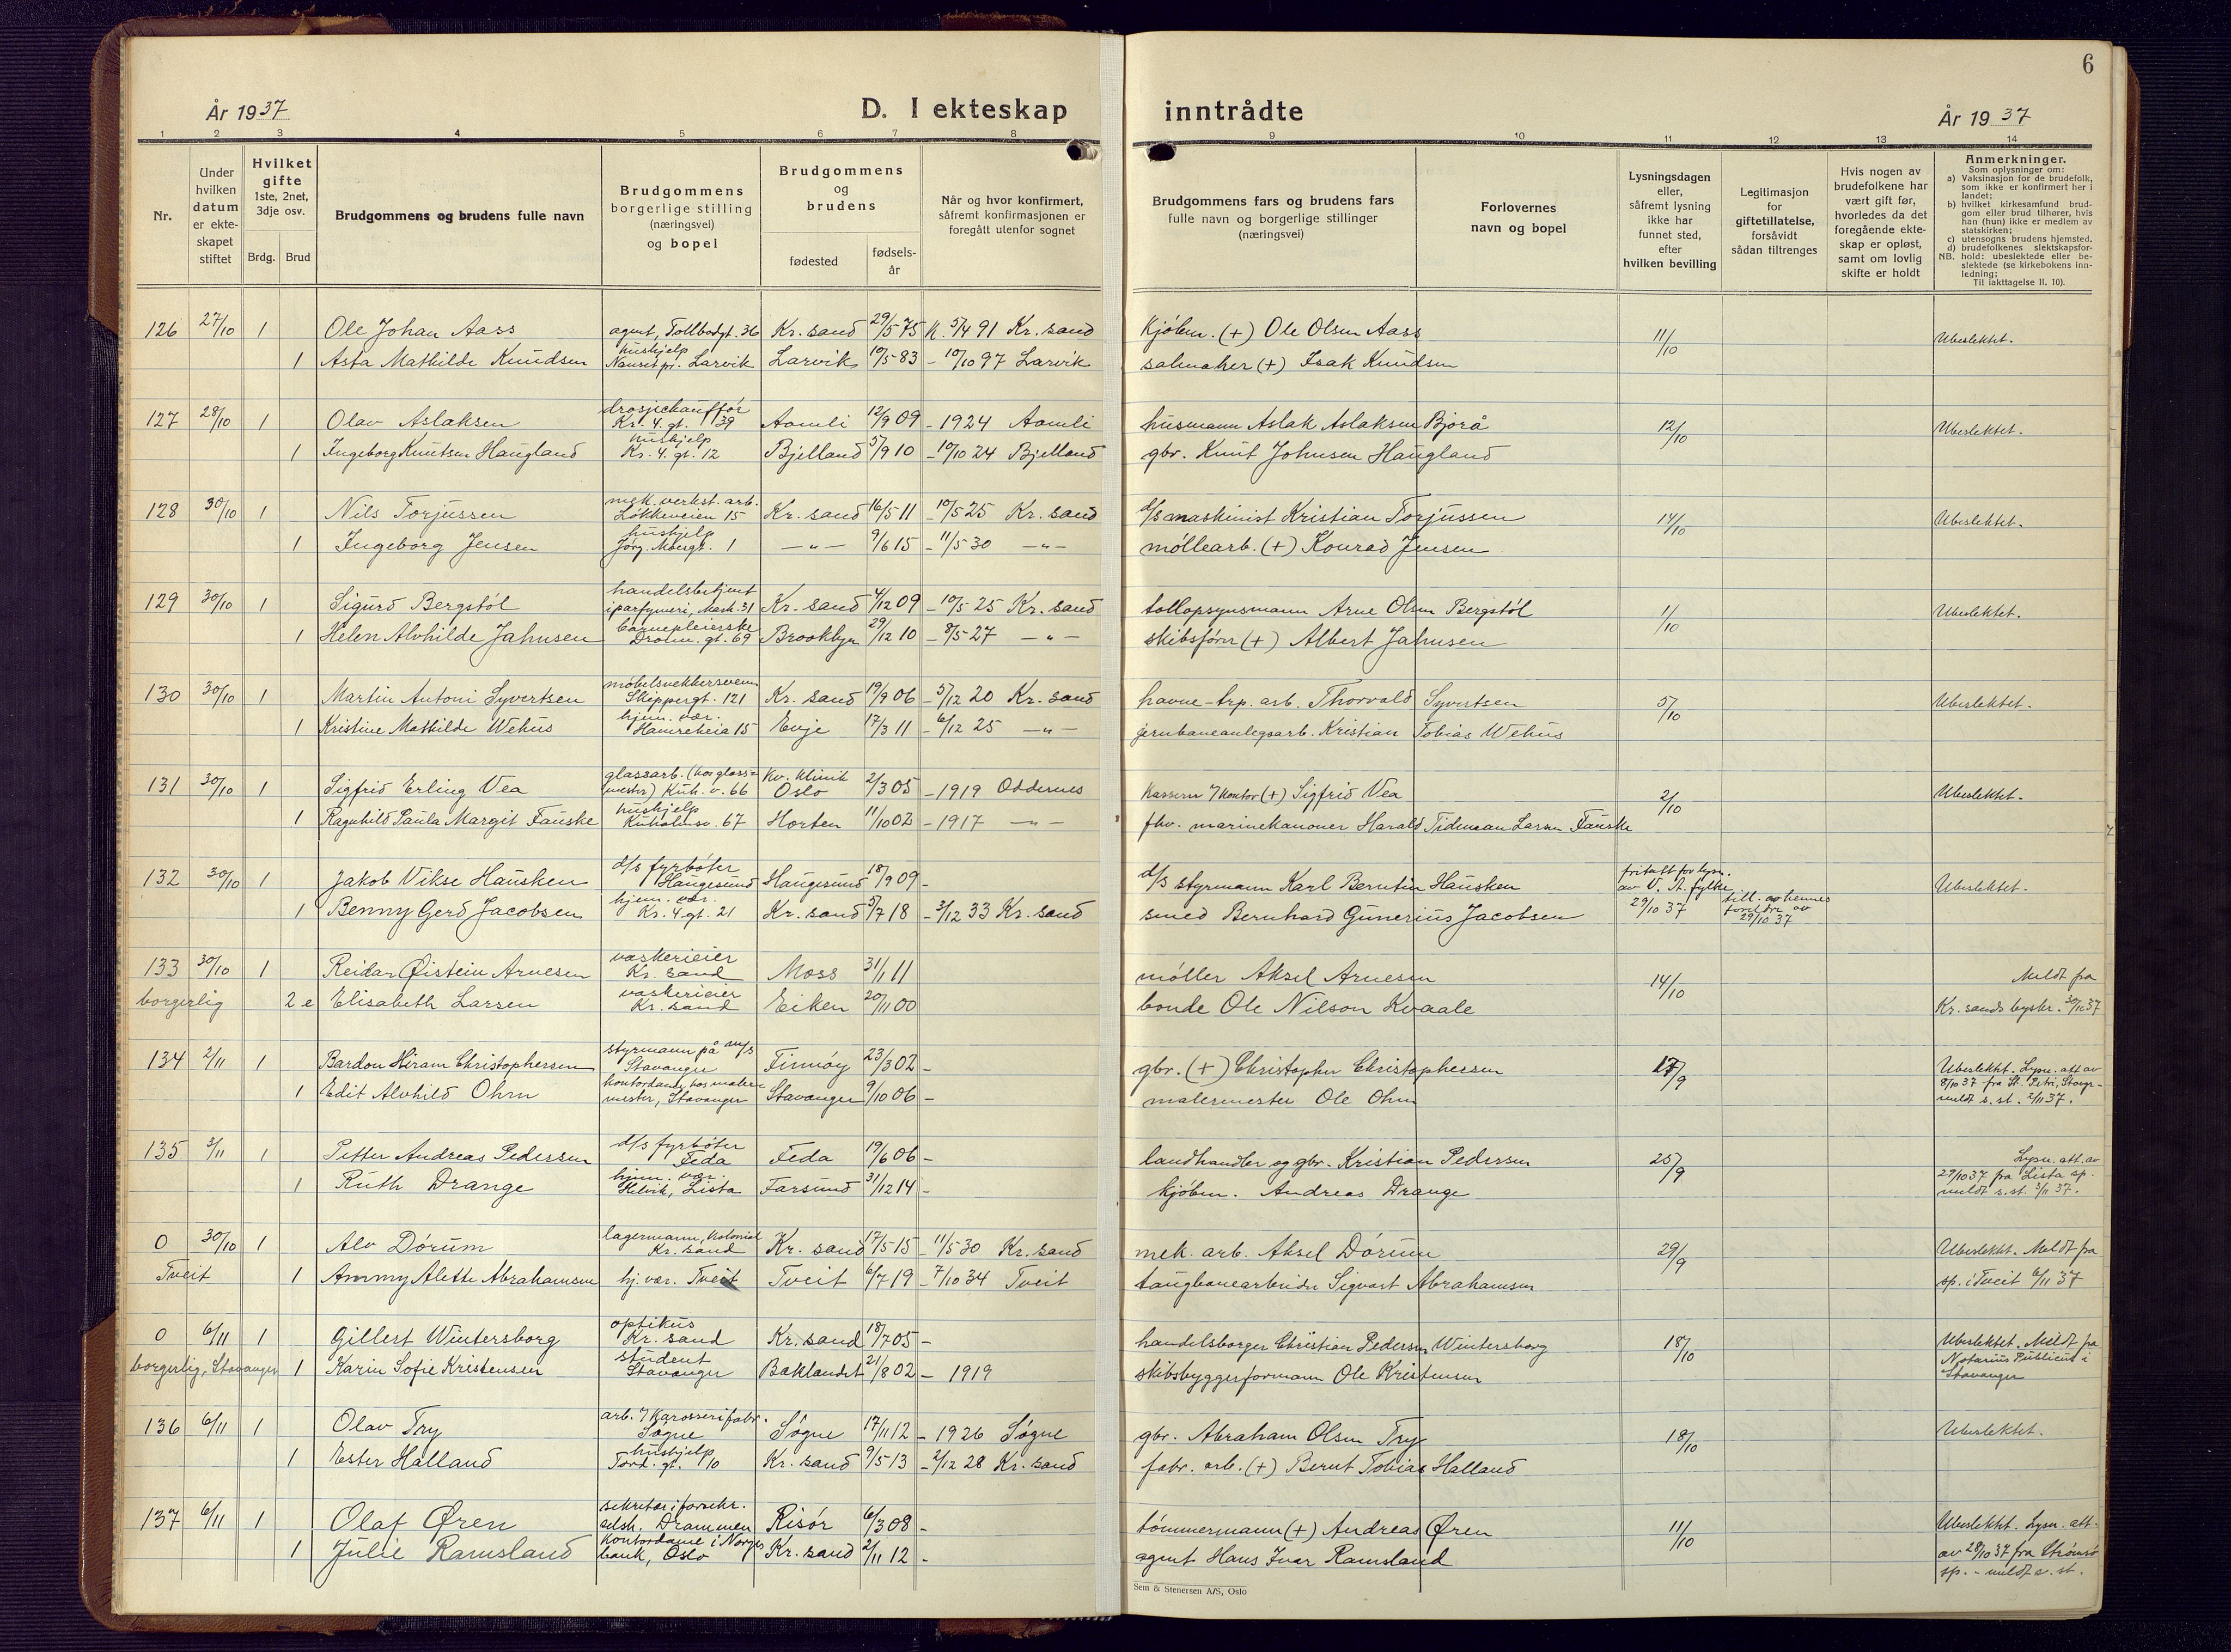 6
År 1937
D. I ekteskap
inntrådte
År 1937
1 2 3 4 5 6 7 8 9 10 11 12 13 14
Nr.
Under
hvilken
datum
er ekte-
skapet
stiftet
Hvilket
gifte
1ste, 2net,
3dje osv.
Brdg. Brud
Brudgommens og brudens fulle navn
Brudgommens
borgerlige stilling
(næringsvei)
og bopel
Brudgommens
og
brudens
fødested
fødsels-
år
Når og hvor konfirmert,
såfremt konfirmasjonen er
foregått utenfor sognet
Brudgommens fars og brudens fars
fulle navn og borgerlige stillinger
(næringsvei)
Forlovernes
navn og bopel
Lysningsdagen
eller,
såfremt lysning
ikke har
funnet sted,
efter
hvilken bevilling
Legitimasjon
for
giftetillatelse,
forsåvidt
sådan tiltrenges
Hvis nogen av
brudefolkene har
vært gift før,
hvorledes da det
foregående ekte-
skap er opløst,
samt om lovlig
skifte er holdt
Anmerkninger.
Som oplysninger om:
a) Vaksinasjon for de brudefolk,
som ikke er konfirmert her i
landet;
b) hvilket kirkesamfund brud-
gom eller brud tilhører, hvis
han (hun) ikke er medlem av
statskirken;
c) utensogns brudens hjemsted.
d) brudefolkenes slektskapsfor-
NB. hold: ubeslektede eller be-
slektede (se kirkebokens inn-
ledning;
Til iakttagelse II. 10).
126 27/10 1 Ole Johan Aass agent, Tollbodgt. 36 Kr. sand 29/5 75 K. 5/4 91 Kr. sand Kjøbm. (+) Ole Olsen Aass 11/10 Ubeslektet.
1 Asta Mathilde Knudsen hushjelp Nanset pr. Larvik Larvik 10/5 83 - 10/10 97 Larvik salmaker (+) Isak Knudsen
127 28/10 1 Olav Aslaksen drosjechauffør Kr. 4. gt. 39 Aamli 12/9 09 - 1924 Aamli husmann Aslak Aslaksen Bjorå 12/10 Ubeslektet.
1 Ingeborg Knutsen Haugland hushjelp Kr. 4. gt. 12 Bjelland 5/9 10 - 10/10 24 Bjelland gbr. Knut Johnsen Haugland
128 30/10 1 Nils Torjussen mek. verkst. arb. Løkkeveien 15 Kr. sand 16/5 11 - 10/5 25 Kr. sand d/s maskinist Kristian Torjussen 14/10 Ubeslektet.
1 Ingeborg Jensen hushjelp Jørg. Moesgt. 1 -"- 9/6 15 - 11/5 30 -"- møllearb. (+) Konrad Jensen
129 30/10 1 Sigurd Bergstøl handelsbetjent i parfymeri, Mark. 31 Kr. sand 4/12 09 - 10/5 25 Kr. sand tollopsynsmann Arne Olsen Bergstøl 1/10 Ubeslektet.
1 Helen Alvhilde Jahnsen barnepleierske Dronn. gt. 69 Brooklyn 29/12 10 - 8/5 27 -"- skibsfører (+) Albert Jahnsen
130 30/10 1 Martin Antoni Syvertsen møbelsnekkersvenn Skippergt. 121 Kr. sand 19/9 06 - 5/12 20 Kr. sand havne-trp. arb. Thorvald Syvertsen 5/10 Ubeslektet.
1 Kristine Mathilde Wehus hjem. vær. Hamreheia 15 Evje 17/3 11 - 6/12 25 -"- jernbaneanlegsarb. Kristian Tobias Wehus
131 30/10 1 Sigfrid Erling Vea glassarb. (hos glass-mester) Kuh. v. 66 Kv. klinik Oslo 2/3 05 - 1919 Oddernes Kasserer 7 kontor (+) Sigfrid Vea 2/10 Ubeslektet.
1 Ragnhild Paula Margit Fauske hushjelp Kuholmsv. 67 Horten 11/10 02 - 1917 -"- fhv. marinekanoner Harald Tideman Larsen Fauske
132 30/10 1 Jakob Vikse Hausken d/s fyrbøter Haugesund Haugesund 18/9 09 - d/s styrmann Karl Berntin Hausken fritatt for lysn. av V. A. fylke 29/10 37 Ubeslektet.
1 Benny Gerd Jacobsen hjem. vær. Kr. 4. gt. 21 Kr. sand 5/7 18 - 3/12 33 Kr. sand smed Bernhard Gunerius Jacobsen till. av hennes foreldre av 29/10 37
133 30/10 1 Reidar Øistein Arnesen vaskerieier Kr. sand Moss 31/1 11 møller Aksel Arnesen 14/10 Meldt fra
borgerlig 2 e Elisabeth Larsen vaskerieier Kr. sand Eiken 20/11 00 bonde Ole Nilson Kvaale Kr. sands byskr. 30/10 37
134 2/11 1 Bardon Hiram Christophersen styrmann på m/s Stavanger Finnøy 23/3 02 - gbr. (+) Christopher Christophersen 17/9 Ubeslektet. Lysn. att. av
1 Edit Alvhild Ohm kontordame hos maler-mester, Stavanger Stavanger 9/10 06 - malermester Ole Ohm 8/10 37 fra St. Petri, Stavgr - meldt s. st. 2/11 37.
135 3/11 1 Petter Andreas Pedersen d/s fyrbøter Feda Feda 19/6 06 - landhandler og gbr. Kristian Pedersen 25/9 Lysn. att. av
1 Ruth Drange hjem. vær. Helvik, Lista Farsund 31/12 14 - kjøbm. Andreas Drange 29/10 37 fra Lista sp. meldt s. st. 3/11 37.
0 30/10 1 Alv Dørum lagermann, kolonial Kr. sand Kr. sand 17/5 15 - 11/5 30 Kr. sand mek. arb. Aksel Dørum 29/9 Ubeslekt. Meldt fra
Tveit 1 Ammy Alette Abrahamsen hj. vær. Tveit Tveit 6/7 19 - 7/10 34 Tveit taugbanearbeider Sigvart Abrahamsen sp. i Tveit 6/11 37
0 6/11 1 Gillert Wintersborg optikus Kr. sand Kr. sand 18/7 05 - handelsborger Christian Pedersen Wintersborg 18/10 Ubeslektet. Meldt fra
borgerlig, Stavanger 1 Karin Sofie Kristensen student Stavanger Baklandet 21/8 02 - 1919 skibsbyggerformann Ole Kristensen Notarius Publicus i Stavanger
136 6/11 1 Olav Try arb. 7 Karosserifabr. Søgne Søgne 17/11 12 - 1926 Søgne gbr. Abraham Olsen Try 18/10 Ubeslektet.
1 Ester Halland hushjelp Tord. gt. 10 Kr. sand 9/5 13 - 2/12 28 Kr. sand fabr. arb. (+) Bernt Tobias Halland
137 6/11 1 Olaf Øren sekretær i forsikr. selsk. Drammen Risør 6/3 08 - tømmermann (+) Andreas Øren 11/10 Ubeslekt. Lysn. att.
1 Julie Ramsland kontordame i Norges bank, Oslo Kr. sand 2/11 12 - agent Hans Ivar Ramsland av 28/10 37 fra Strømsø sp. - meldt s. st.
Sem & Stenersen A/S, Oslo